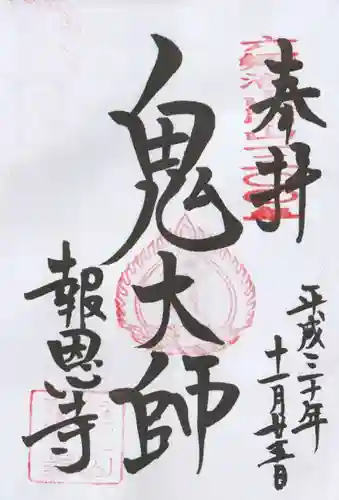 奉拝
鬼大師
平成三十年
十一月廿五日
報恩寺